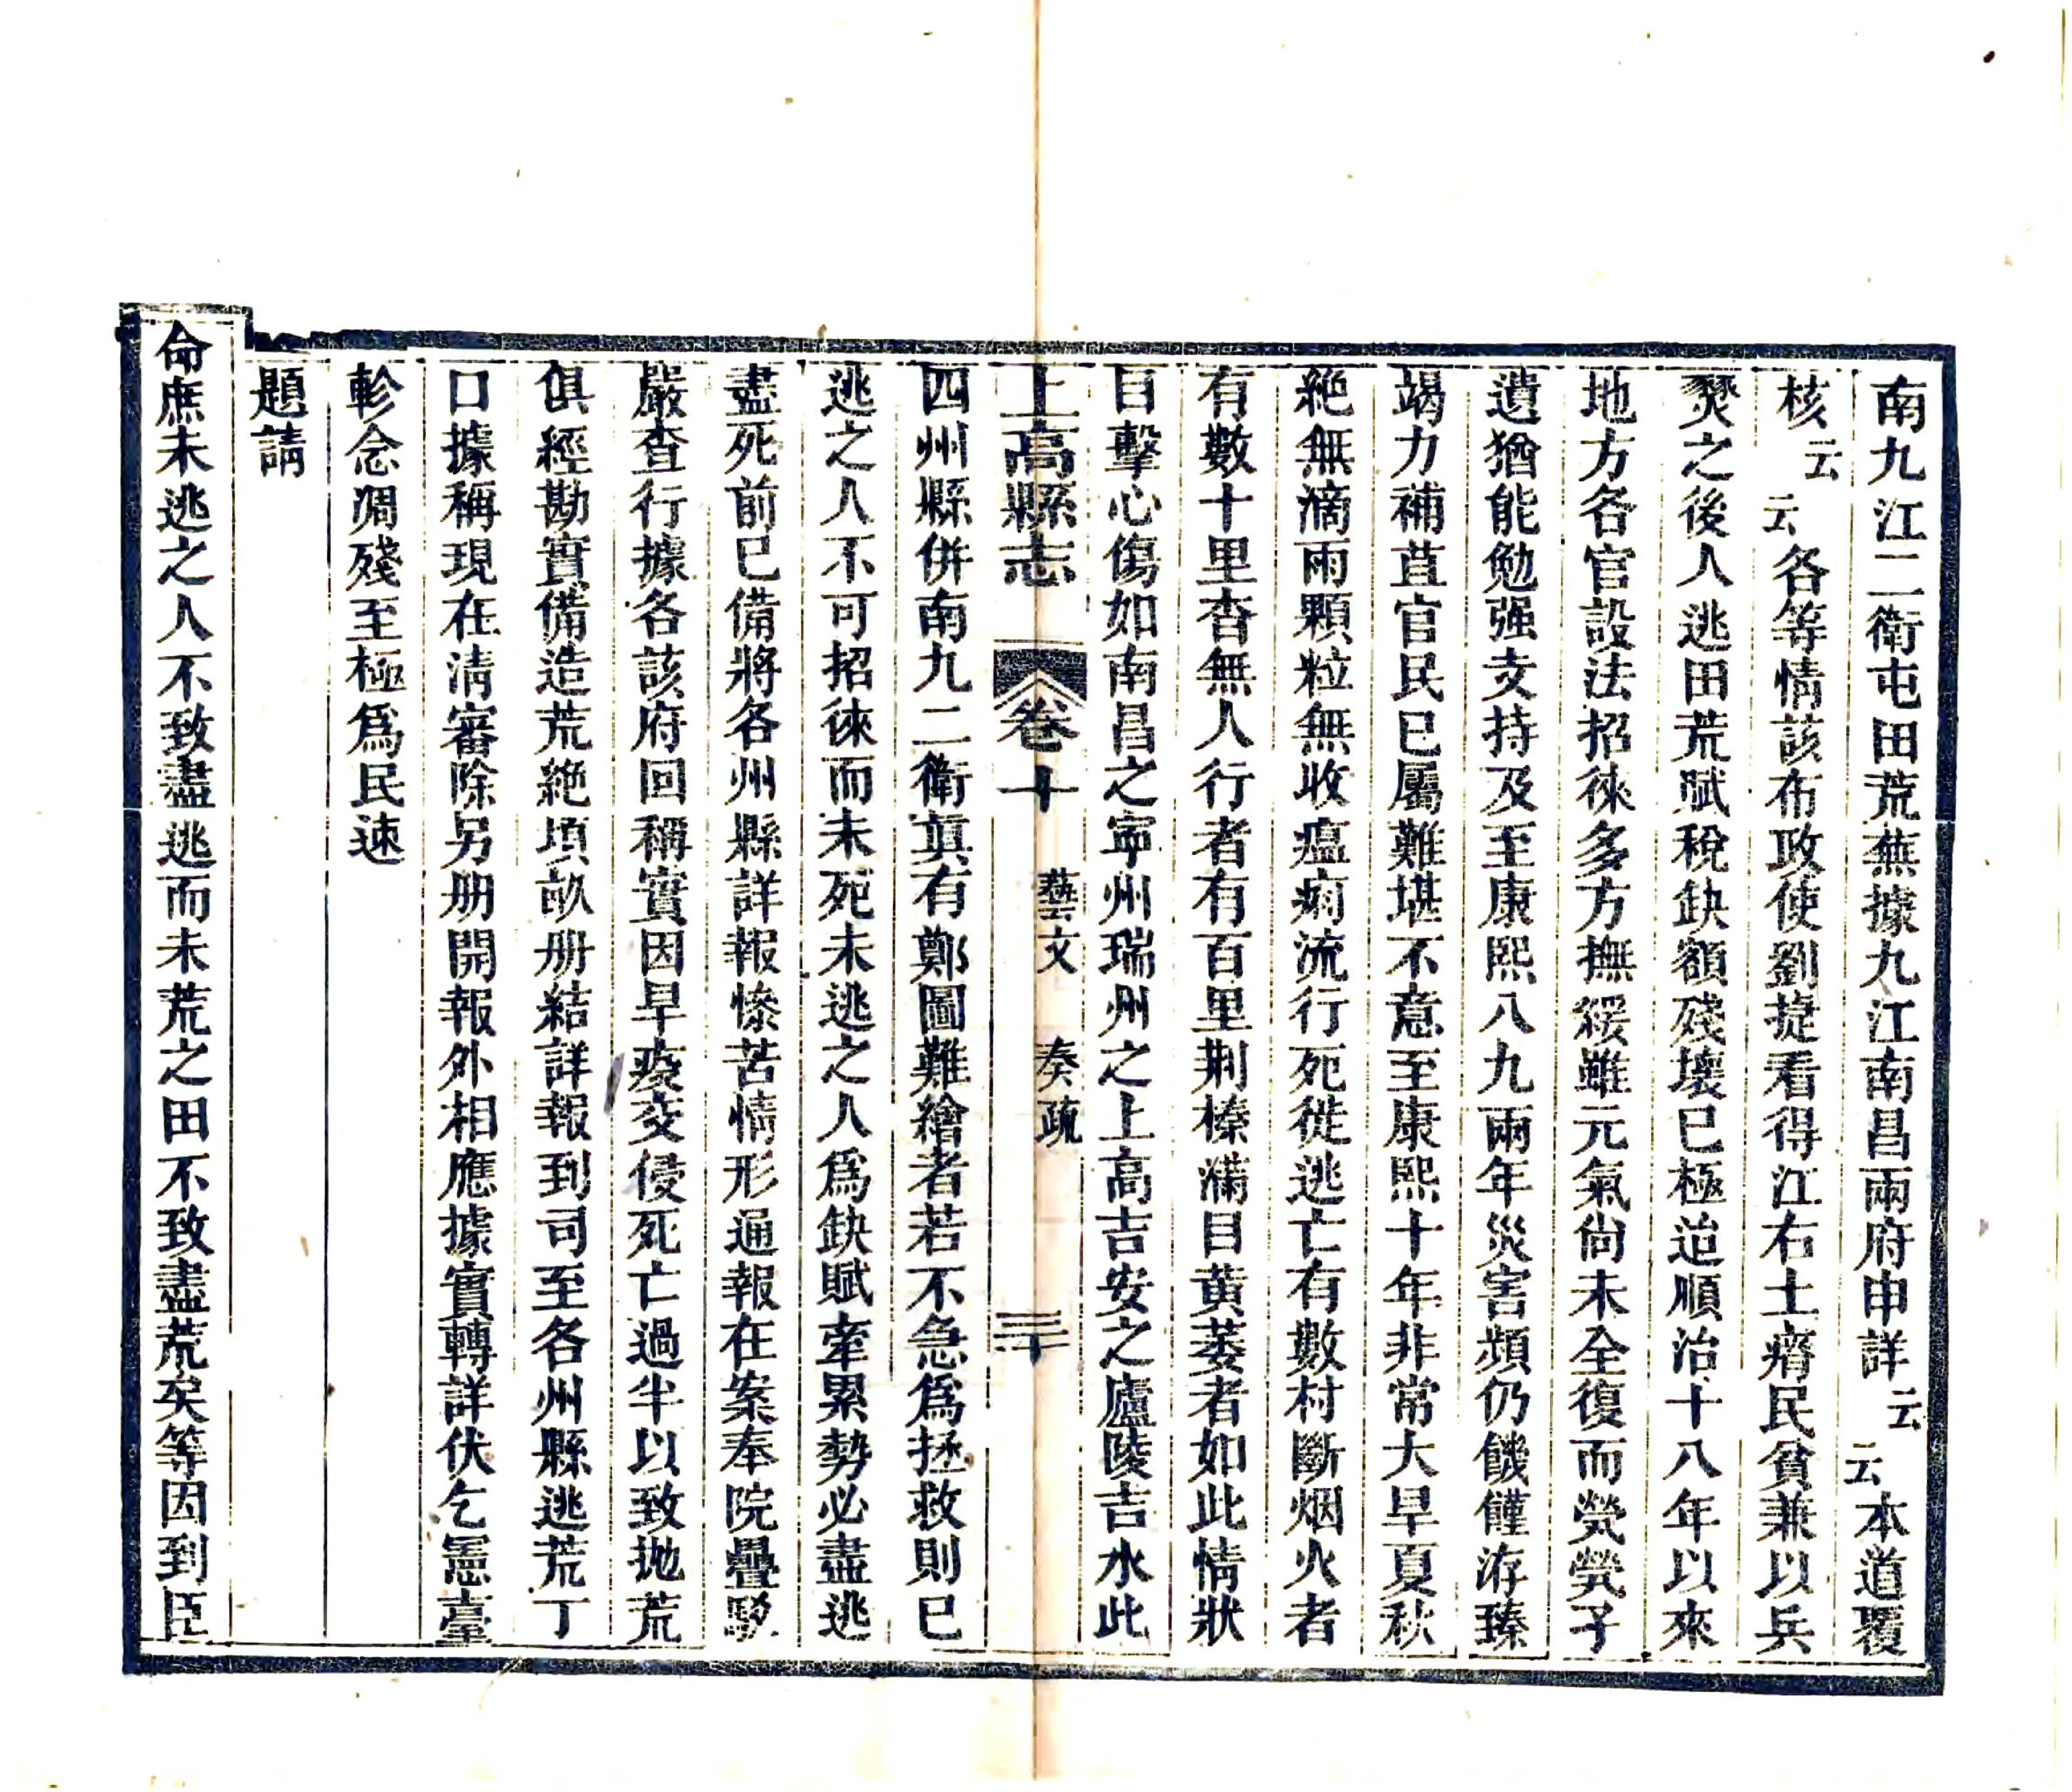 南九江二衛屯田荒蕪據九江南昌兩府申詳云云本道覆
核云云各等情該布政使劉捷看得江右土瘠民貧兼以兵
燹之後人逃田荒賦稅缺額殘壞已極迨順治十八年以來
地方各官設法招徠多方撫綏雖元氣尙未全復而煢煢孑
遺猶能勉强支持及至康熙八九兩年災害頻仍饑饉洊臻
竭力補苴官民已屬難堪不意至康熙十年非常大旱夏秋
絶無滴雨顆粒無收瘟疫流行死徙逃亡有數村斷烟火者
有數十里杳無人行者有百里荆榛滿目黄萎者如此情狀
目擊心傷如南昌之寧州瑞州之上高吉安之廬陵吉水此
上高縣志 卷十 藝文 奏疏 三十
四州縣併南九二衛眞有鄭圖難繪者若不急爲拯救則已
逃之人不可招徠而未死未逃之人爲缺賦牽累勢必盡逃
盡死前已備將各州縣詳報慘苦情形通報在案奉院疊駁
嚴查行據各該府回稱實因旱疫交侵死亡過半以致抛荒
俱經勘實備造荒絶項畝册結詳報到司至各州縣逃荒丁
口據稱現在淸審除另册開報外相應據實轉詳伏乞憲臺
軫念凋殘至極爲民速
題請
命庶未逃之人不致盡逃而未荒之田不致盡荒矣等因到臣